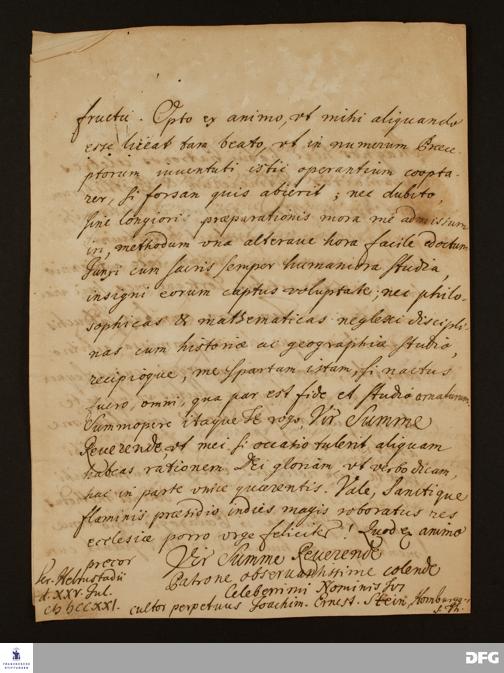 fructu. Opto ex animo, vt mihi aliquando
esse liceat tam beato, vt in numerum Præce-
ptorum iuventuti istic operantium coopta-
rer, si forsan quis abierit; nec dubito,
sine longiori præparationis mora me admissum
iri, methodum vna alterave hora facile edoctum.
Junxi cum sacris semper humaniora studia,
insigni eorum captus voluptate; nec philo-
sophicas & mathematicas neglexi discipli-
nas cum historiæ ac geographiæ studio,
recipioque, me spartam istam, si nactus
fuero, omni, qua par est fide et studio ornaturum.
Summopere itaque Te rogo, Vir Summe
Reverende, vt mei si occasio tulerit aliquam
habeas rationem, Dei gloriam, vt verbo dicam,
hac in parte vnice quærentis. Vale, Sanctique
flaminis præsidio indies magis roboratus res
ecclesiæ porro vrge feliciter! Quod ex animo
precor
Vir Summe Reverende
Patrone observantissime colende
Celeberrimi Nominis Tui
cultor perpetuus Joachim. Ernest. Stein, Homburg.
S. Th.
Scr. Helmstadii
d. XXV. Jul.
CIƆ IƆCCXXI.
FRANCKESCHE
STIFTUNGEN
DFG